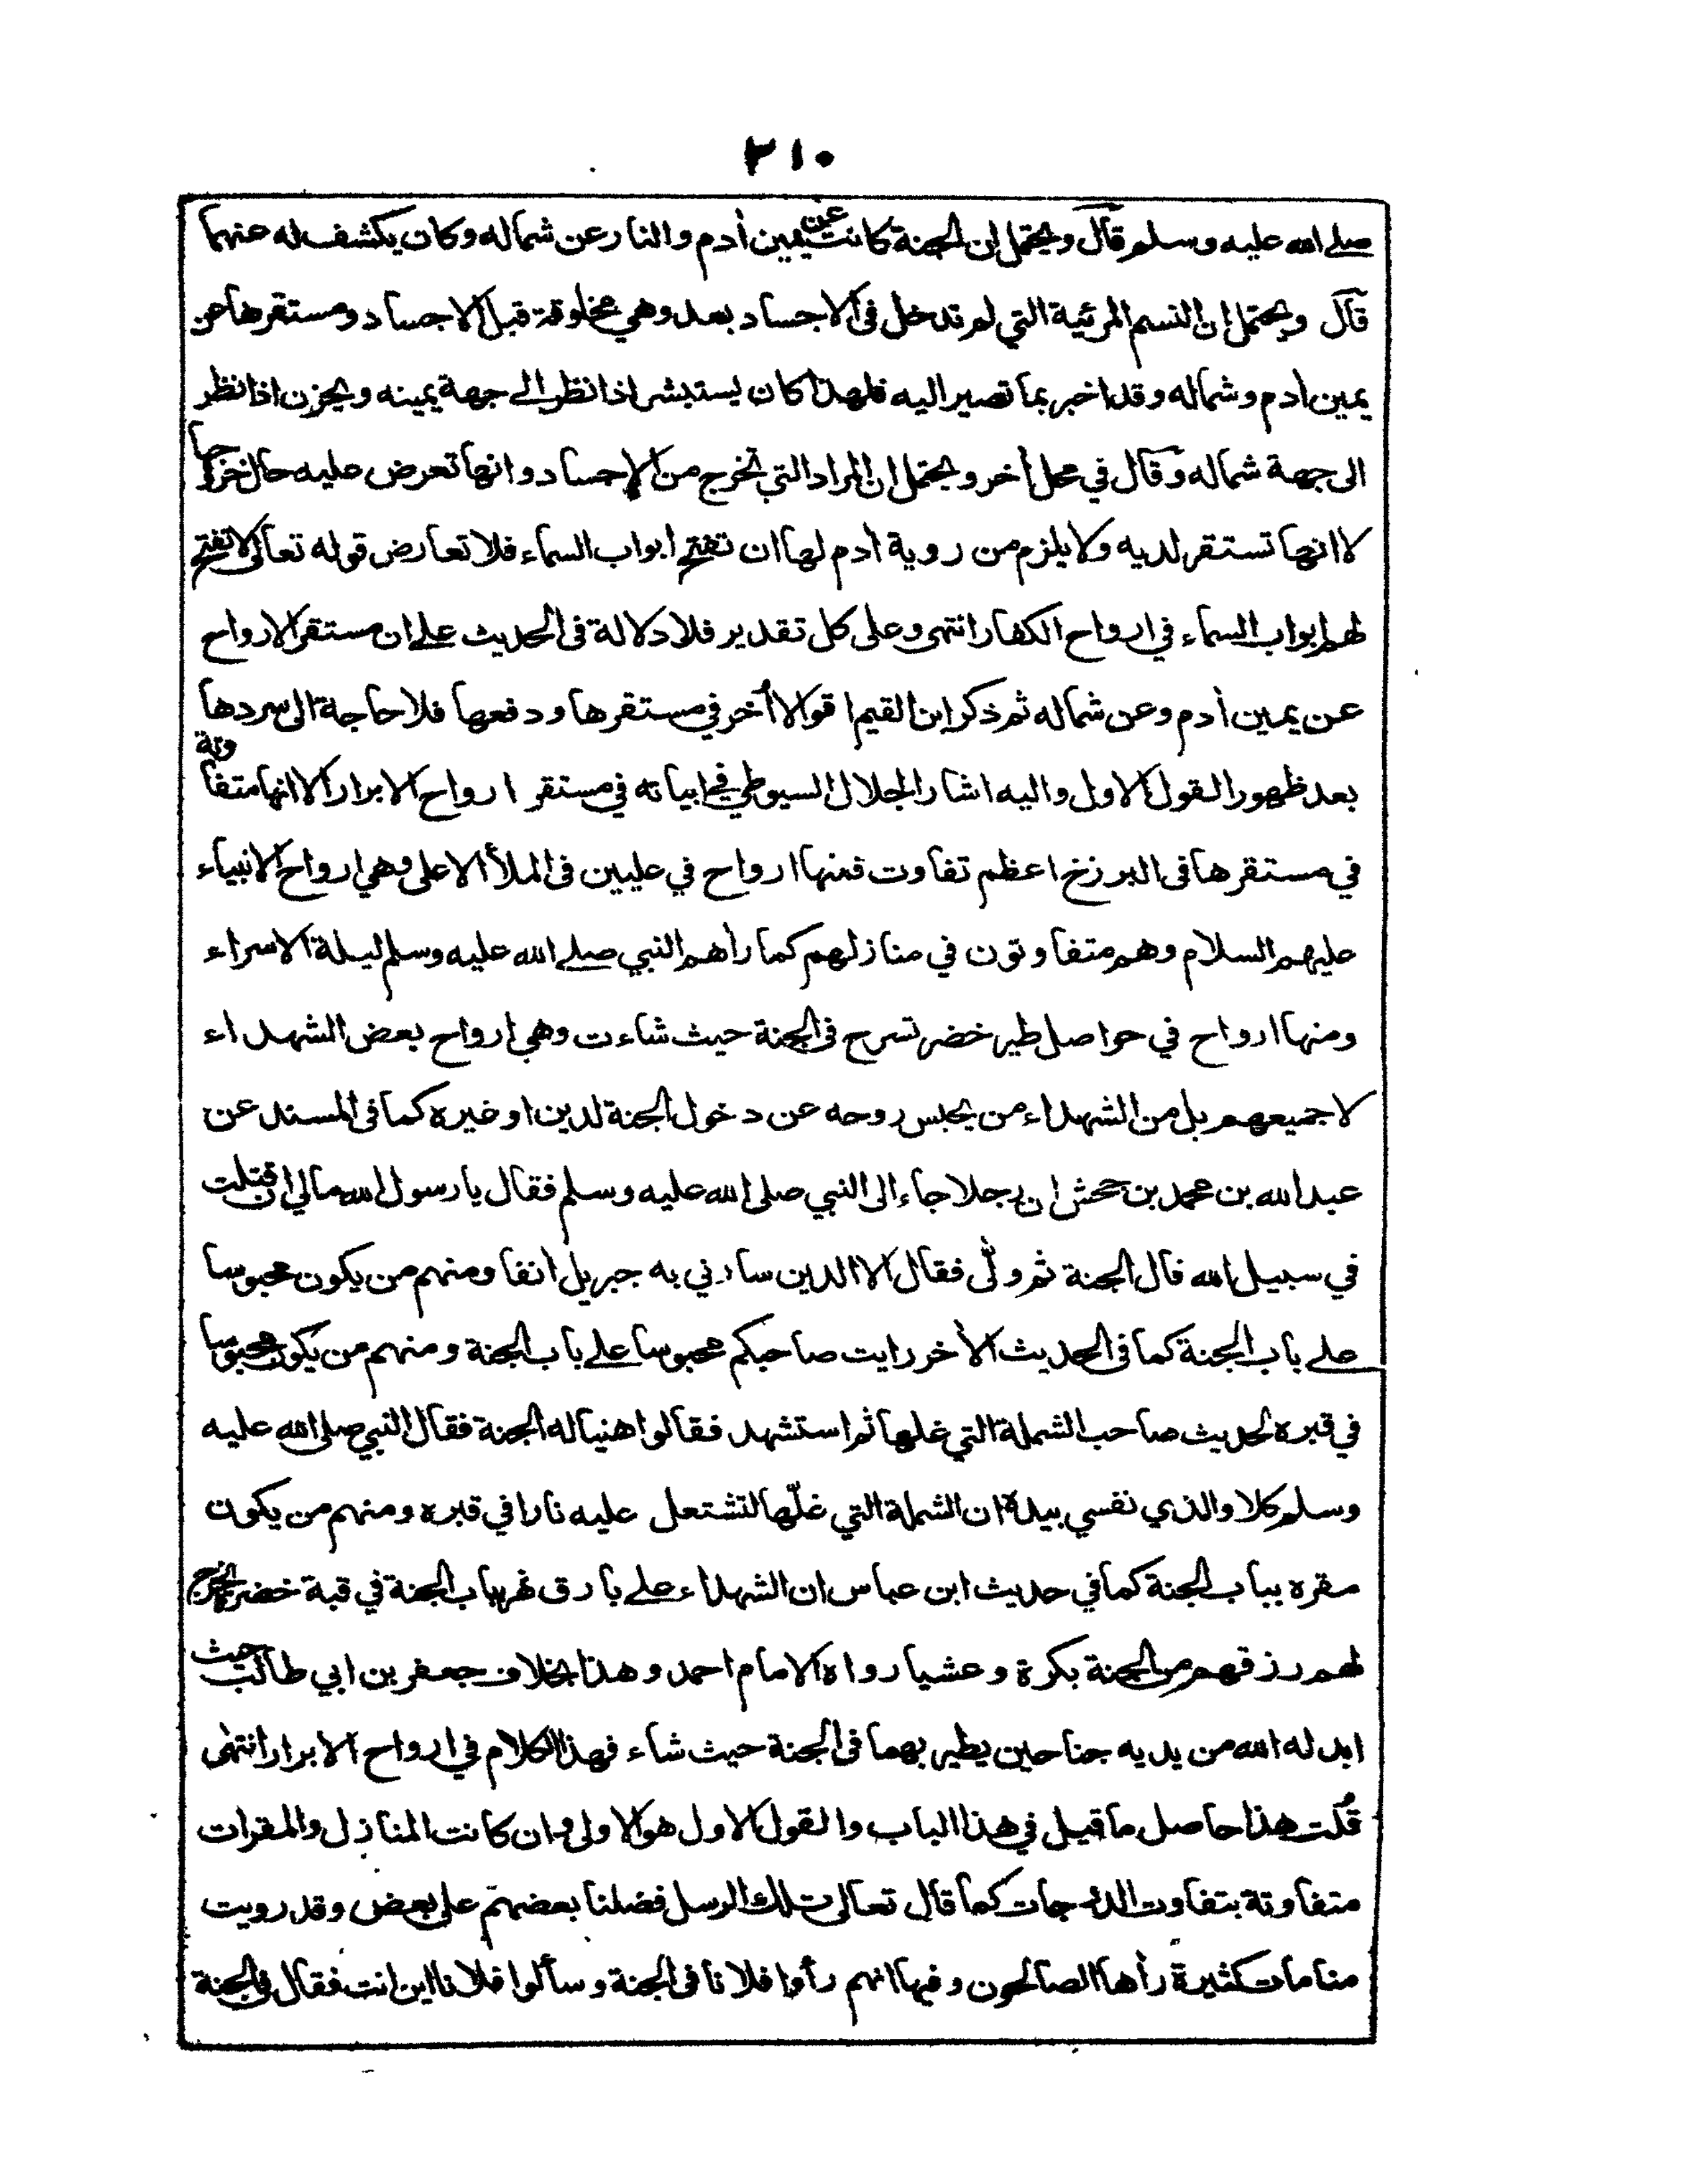 ٢١٠
صلے الله عليه وسلم قال ويحتمل ان الجنة كانت عن يمين أدم والنار عن شماله وكان يكشف له عنهما
قال ويحتمل ان النسم المرئية التي لم تدخل فى الاجساد بعد وهي مخلوقة قبل الاجساد ومستقرها عن
يمين أدم وشماله وقد اخبر بما تصير اليه فلهذا كان يستبشر اذا نظر الے جهة يمينه ويحزن اذا نظر
الى جهة شماله وقال في محل أخر ويحتمل ان المراد التي تخرج من الاجساد وانها تعرض عليه حال خروجها
لا انها تستقر لديه ولا يلزم من روية أدم لها ان تفتح ابواب السماء فلا تعارض قوله تعالى لا تفتح
لهم ابواب السماء في ارواح الكفار انتهى وعلى كل تقدير فلا دلالة فى الحديث علے ان مستقر الارواح
عن يمين أدم وعن شماله ثم ذكر ابن القيم اقوالا أخر في مستقرها ودفعها فلا حاجة الى سردها
بعد ظهور القول الاول واليه اشار الجلال السيوطي في ابياته في مستقر ارواح الابرار الا انها متفاوتة
في مستقرها فى البرزخ اعظم تفاوت فمنها ارواح في عليين فى الملأ الاعلى وهي ارواح الانبياء
عليهم السلام وهم متفاوتون في منازلهم كما رأهم النبي صلے الله عليه وسلم ليلة الاسراء
ومنها ارواح في حواصل طير خضر تسرح فى الجنة حيث شاءت وهي ارواح بعض الشهداء
لا جميعهم بل من الشهداء من يحبس روحه عن دخول الجنة لدين او غيره كما فى المسند عن
عبد الله بن محمد بن جحش ان رجلا جاء الى النبي صلى الله عليه وسلم فقال يا رسول الله مالي ان قتلت
في سبيل الله قال الجنة ثم ولّى فقال الا الدين سارني به جبريل أنفا ومنهم من يكون محبوسا
علے باب الجنة كما فى الحديث الأخر رايت صاحبكم محبوسا علے باب الجنة ومنهم من يكون محبوسا
في قبره لحديث صاحب الشملة التي غلها ثم استشهد فقالوا هنيا له الجنة فقال النبي صلى الله عليه
وسلم كلا والذي نفسي بيده ان الشملة التي غلّها لتشتعل عليه نارا في قبره ومنهم من يكون
مقره بباب الجنة كما في حديث ابن عباس ان الشهداء علے بارق نهر بباب الجنة في قبة خضراء يخرج
لهم رزقهم من الجنة بكرة وعشيا رواه الامام احمد وهذا بخلاف جعفر بن ابي طالب حيث
ابدله الله من يديه جناحين يطير بهما فى الجنة حيث شاء فهذا الكلام في ارواح الابرار انتهى
قُلت هذا حاصل ما قيل في هذا الباب والقول الاول هو الاولى وان كانت المنازل والمقرات
متفاوتة بتفاوت الدرجات كما قال تعالى تلك الرسل فضلنا بعضهم على بعض وقد رويت
منامات كثيرة رأها الصالحون وفيها انهم رأوا فلانا فى الجنة وسألوا فلانا اين انت فقال فى الجنة